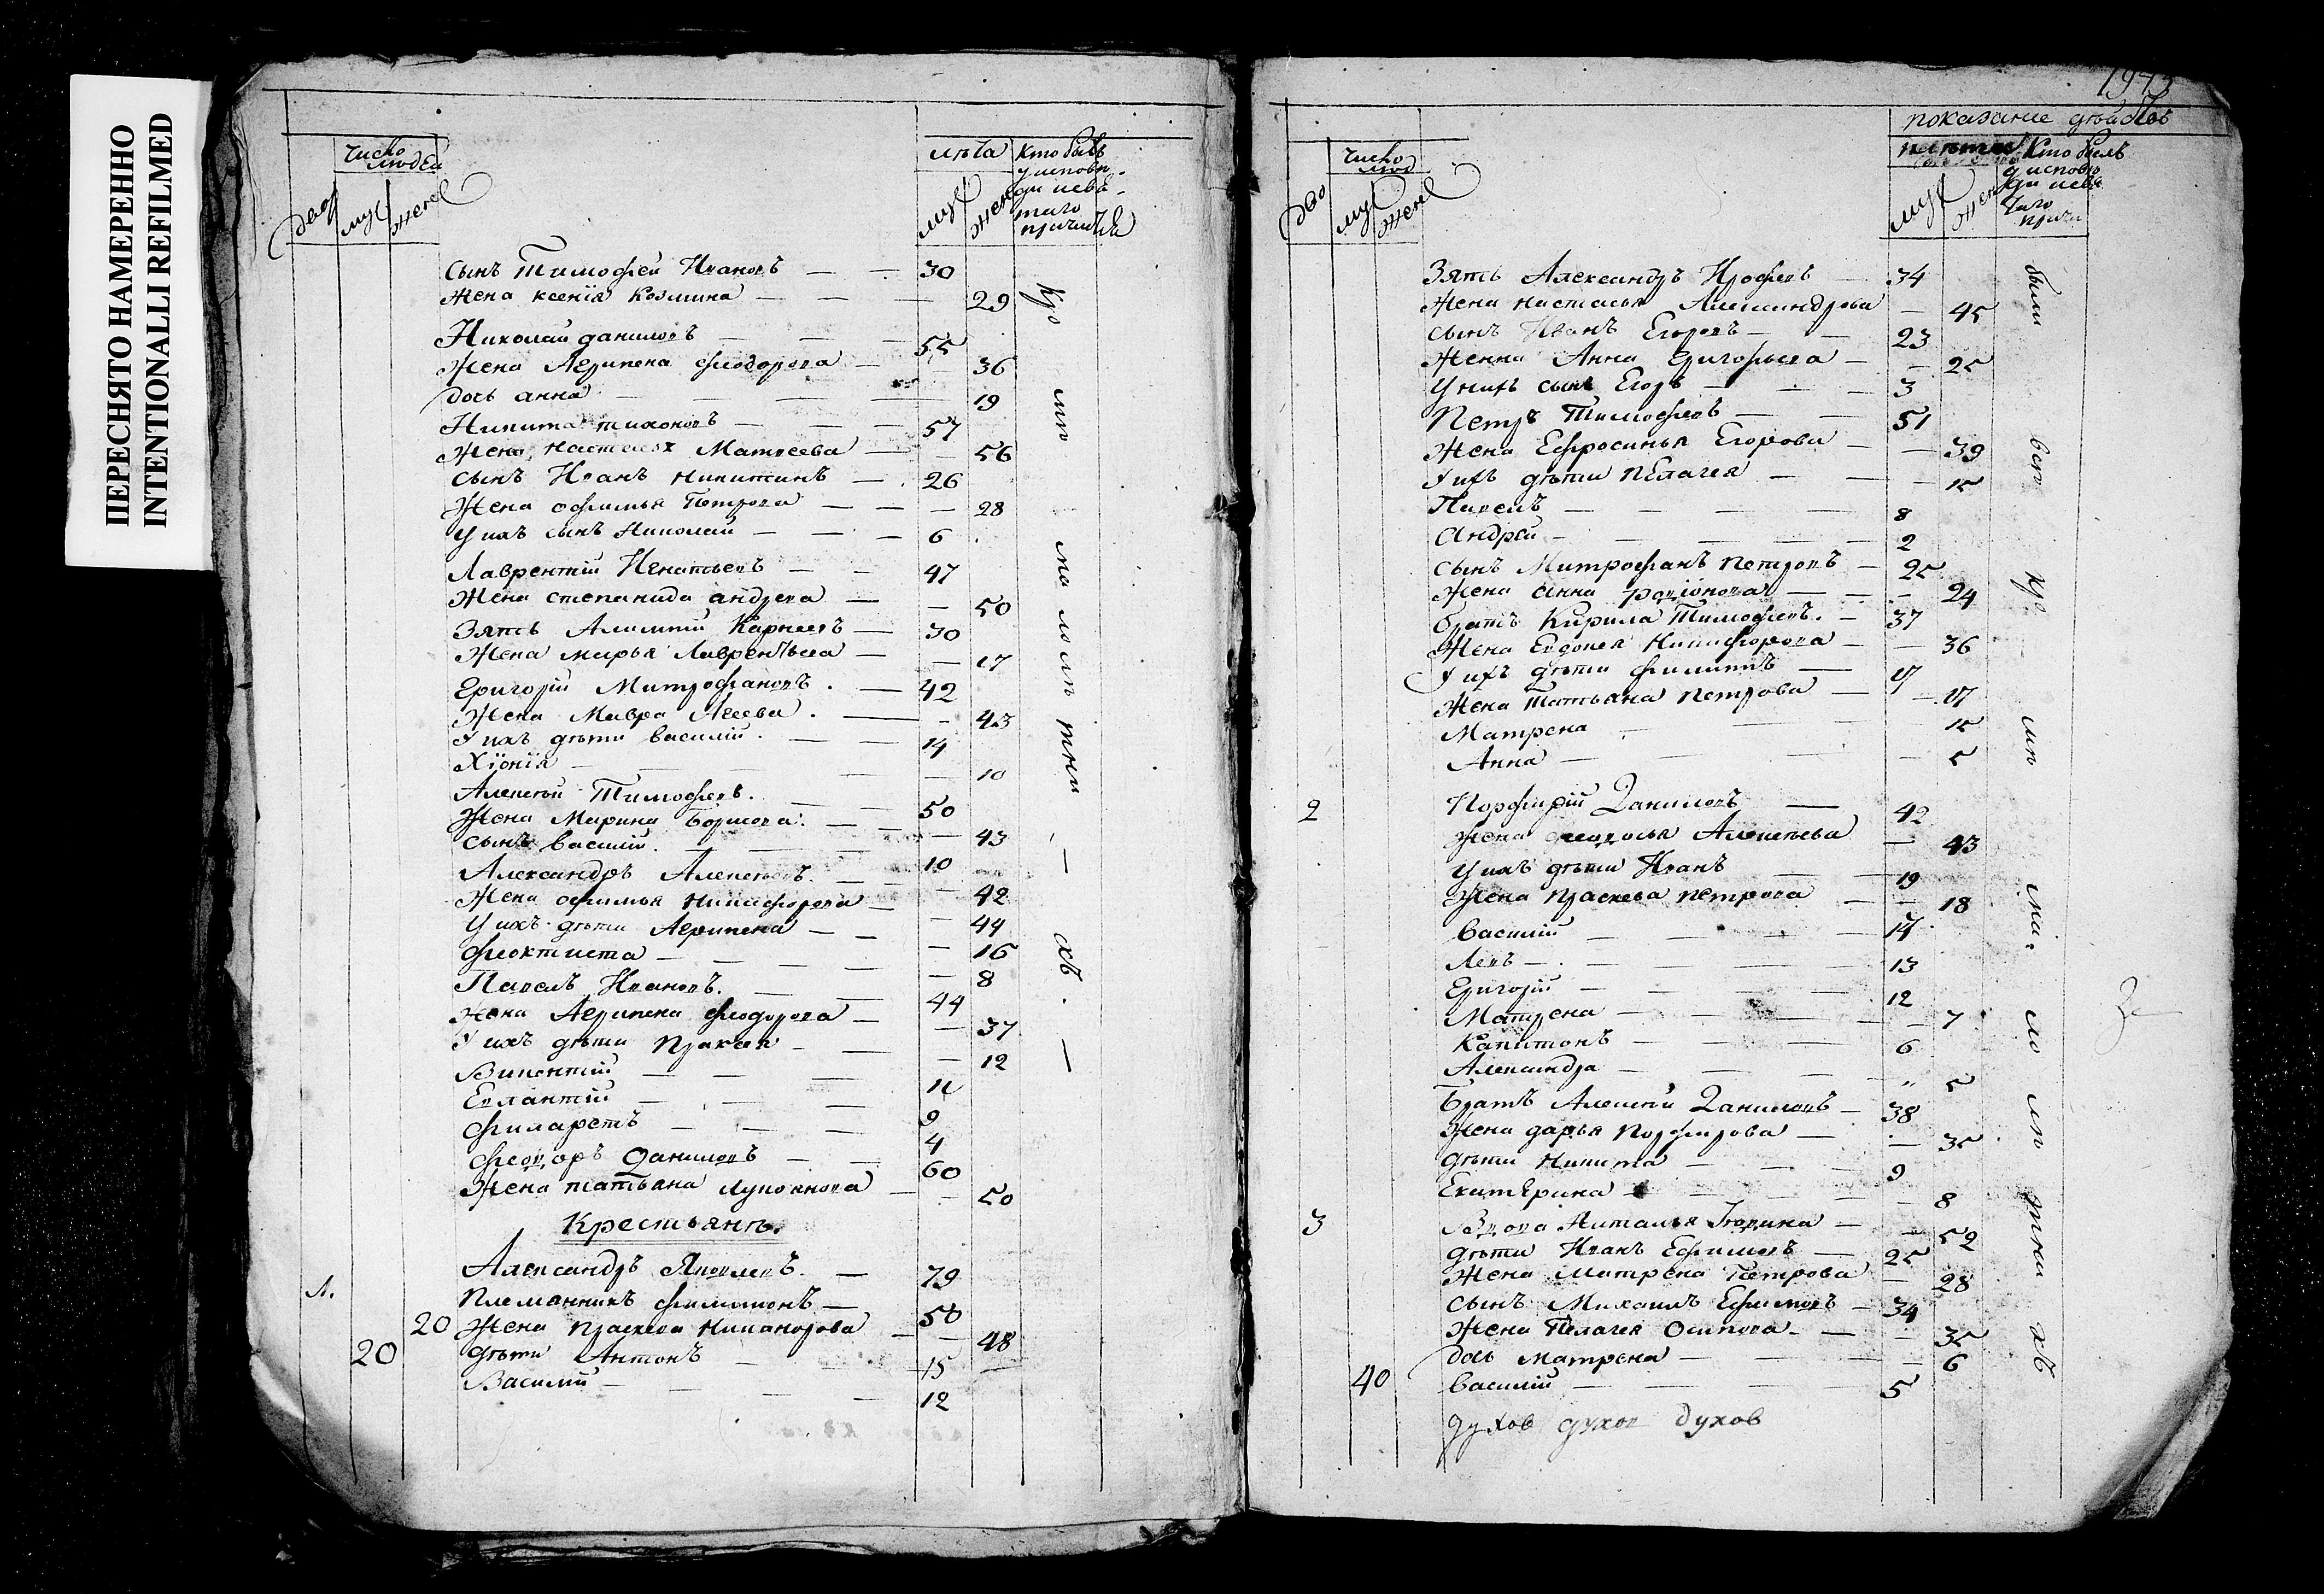 ПЕРЕСНЯТО НАМЕРЕННО
INTENTIONALLI REFILMED
число людей
лѣта
Кто былъ у исповѣди
муж
жене
Сынъ Тимофей Ивановъ — 30
Жена Ксенія Козмина — 29
Николай Даниловъ — 55
Жена Агрипена Феодорова — 36
дочь Анна — 19
Никита Тихоновъ — 57
Жена Настасья Матвеева — 56
Сынъ Иванъ Никитинъ — 26
Жена Офимья Петрова — 28
У ихъ сынъ Николай — 6
Лаврентій Игнатьевъ — 47
Жена Степанида Андрева — 50
Зять Алимпій Карнеевъ — 30
Жена Марья Лаврентьева — 17
Григорій Митрофановъ — 42
Жена Мавра Агеева — 43
У ихъ дѣти Василій — 14
Хіонія — 10
Алексѣй Тимофевъ — 50
Жена Марина Борисова — 43
Сынъ Василій — 10
Александръ Алексѣевъ — 42
Жена Офимья Никифорова — 44
У ихъ дѣти Агрипена — 16
Феоктиста — 8
Павелъ Ивановъ — 44
Жена Агрипена Феодорова — 37
У ихъ дѣти — 12
Викентій — 11
Евлантій — 9
Филаретъ — 4
Феодоръ Даниловъ — 60
Жена Татьяна — 50
Крестьянъ.
Александръ Яковлевъ — 79
Племянникъ Филимонъ — 50
20 Жена Праскева Никанорова — 48
20 дѣти Антонъ — 15
Василій — 12
показание дѣйствъ
число люд
Кто былъ у исповѣди
муж
жене
Зять Александръ — 34
Жена Настасья Александрова — 45
Сынъ Иванъ Егоровъ — 23
Женна Анна Григорьева — 25
У нихъ сынъ Егоръ — 3
Петръ Тимофевъ — 51
Жена Ефросинья Егорова — 39
У ихъ дѣти Пелагея — 15
Павелъ — 8
Андрей — 2
Сынъ Митрофанъ Петровъ — 25
Жена Анна Родіонова — 24
братъ Кирила Тимофевъ — 37
Жена Евдокея Никифорова — 36
У ихъ дѣти Филиппъ — 17
Жена Татьяна Петрова — 17
Матрена — 15
Анна — 5
2 Порфирій Даниловъ — 42
Жена Феодосья Алексѣева — 43
У ихъ дѣти Иванъ — 19
Жена Праскева Петрова — 18
Василій — 14
Левъ — 13
Григорій — 12
Матрена — 7
Капитонъ — 6
Александра — 5
Братъ Алексѣй Даниловъ — 38
Жена Дарья Порфирова — 35
Дѣти Никита — 9
Екатерина — 8
3 Вдова Наталья — 52
Дѣти Иванъ Ефимовъ — 25
Жена Матрена Петрова — 28
Сынъ Михаилъ Ефимовъ — 34
Жена Пелагея Осипова — 35
дочь Матрена — 6
40 Василій — 5
духов духов духов